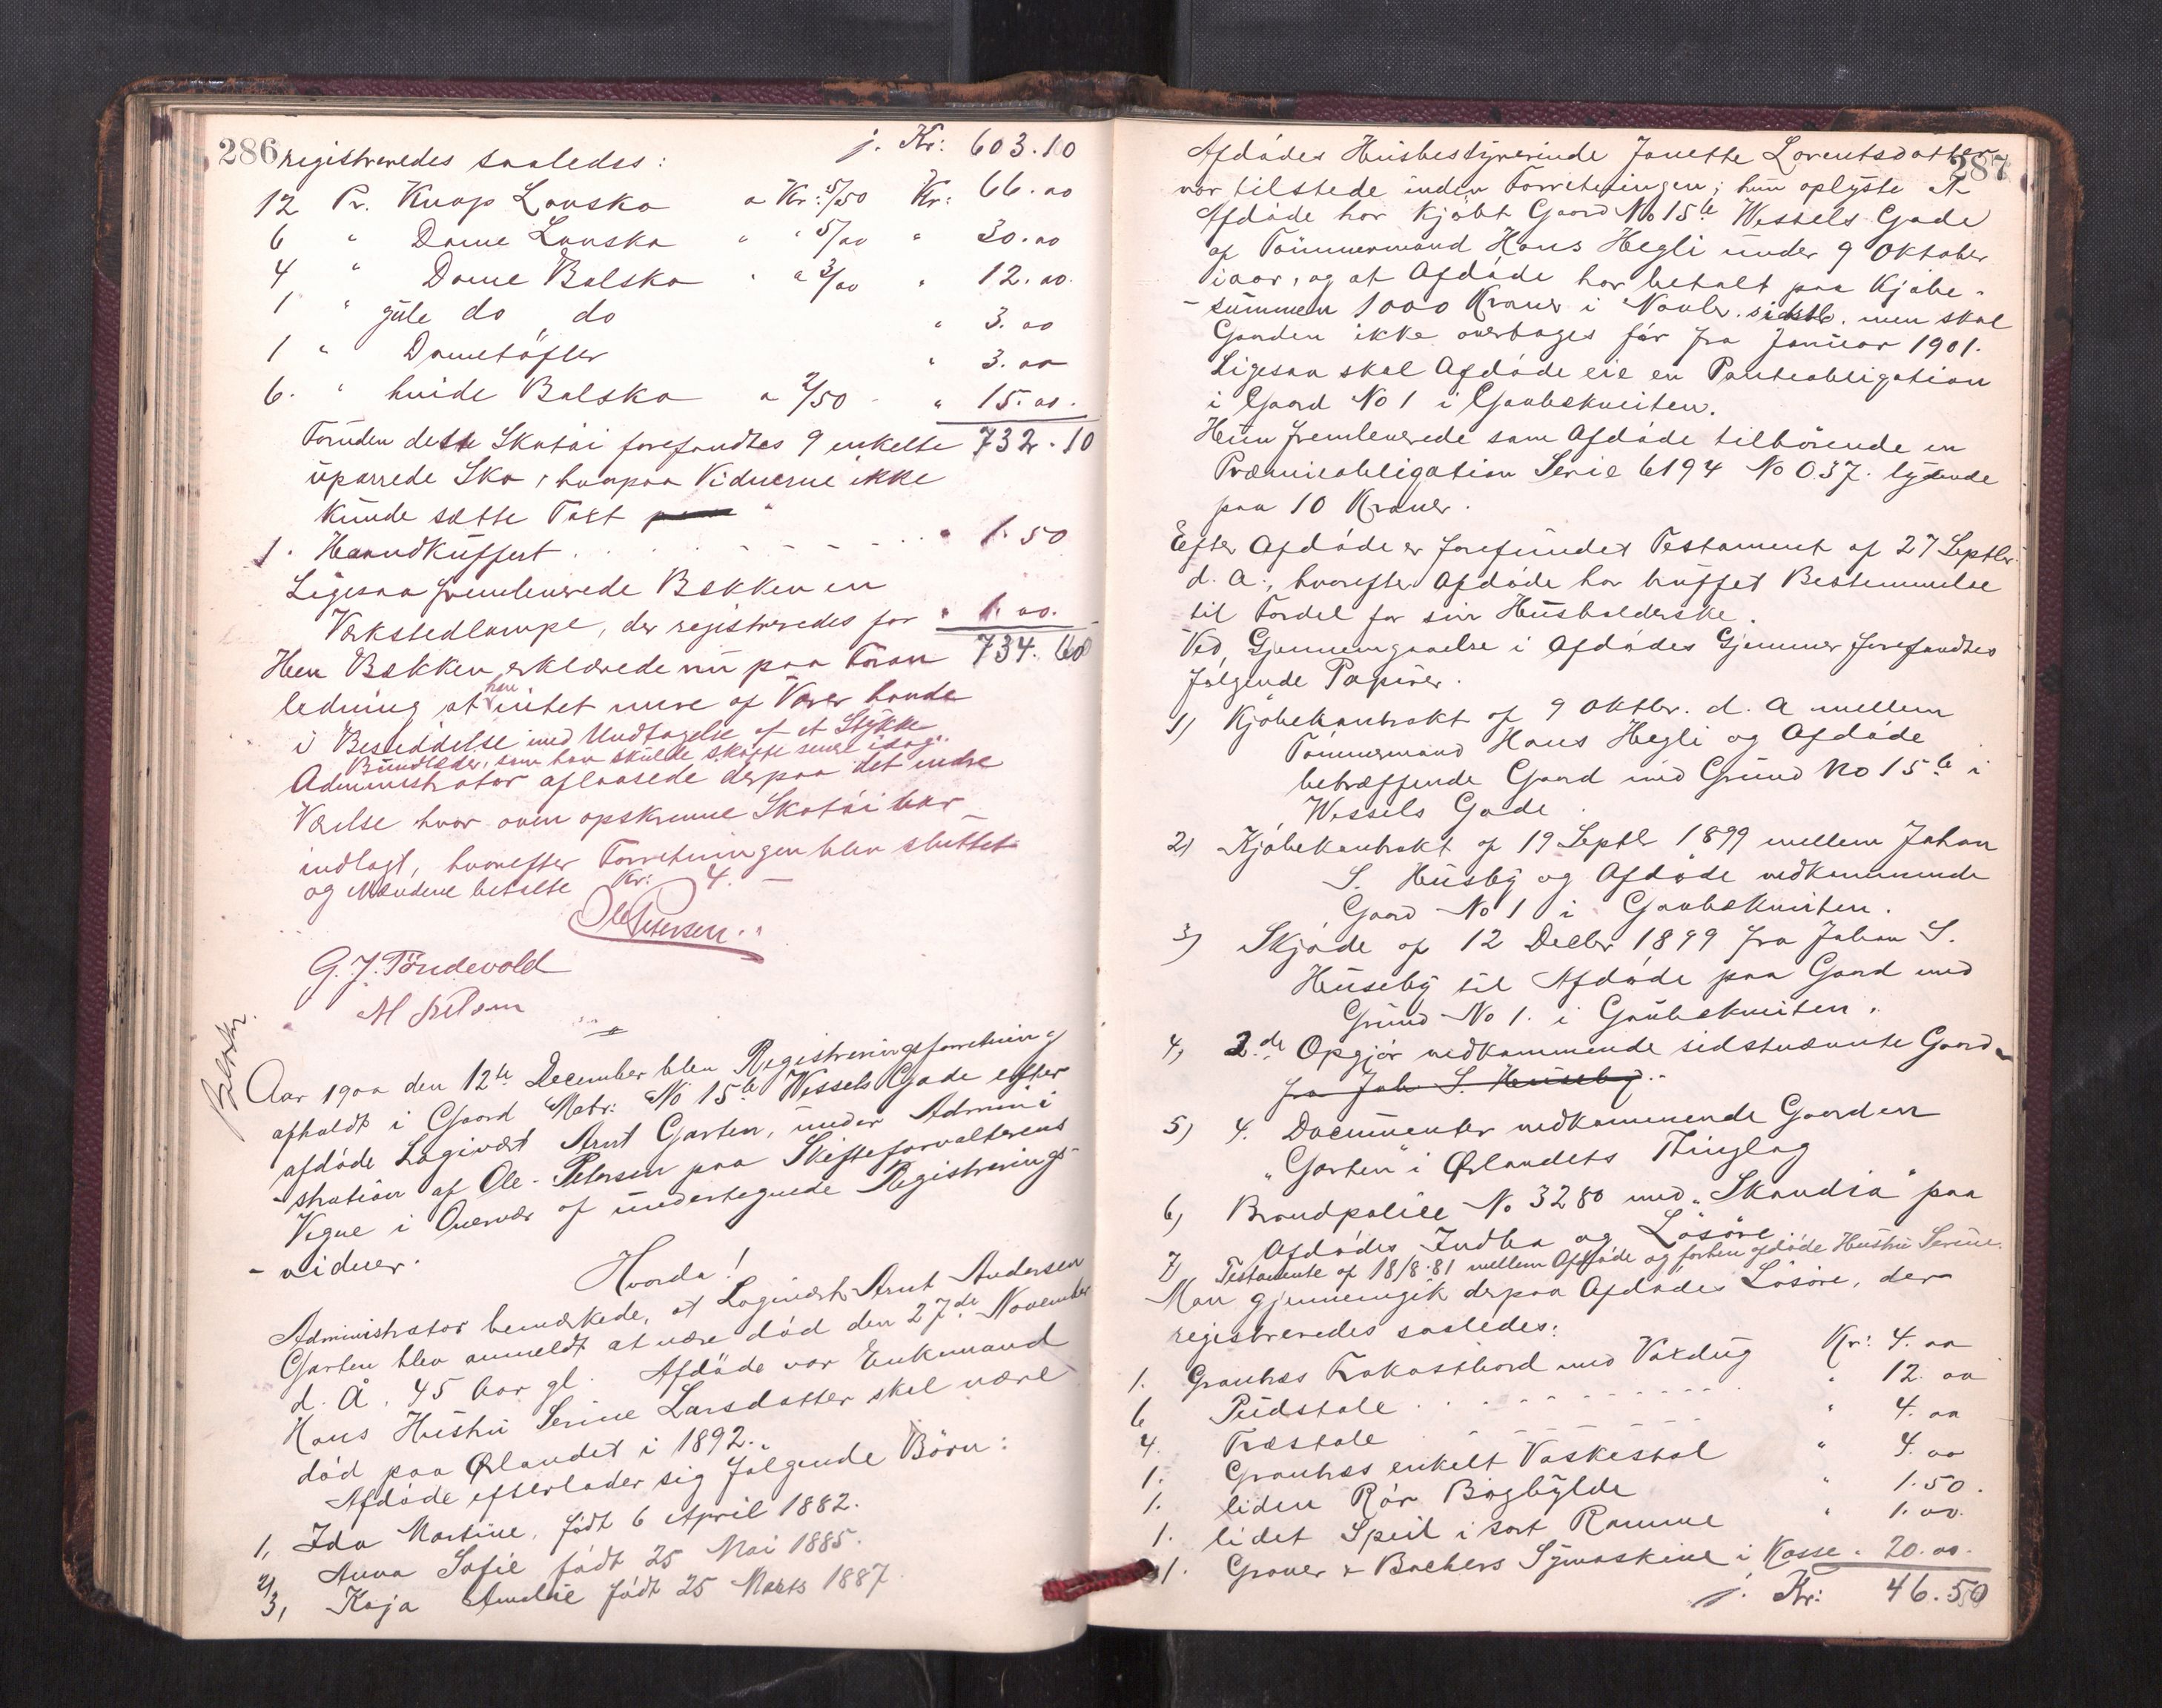 286 registreredes saaledes: j. Kr: 603.10
12 Pr. Knap Lansko a Kr: 5/50 Kr: 66.00
6 " Dame Lansko " " 5/00 " 30.00
4 " Dame Balsko " a 3/00 " 12.00
1 " gule do do " 3.00
1 " Dametøfler " 3.00
6. " hvide Balsko a 2/50 - " 15.00.
Foruden dette Skotøi forefandtes 9 enkelte 732.10
uparrede Sko, hvorpaa Vidnerne ikke
kunde sætte Taxt
1. Haandkuffert " 1.50
Ligesaa fremleverede Bakken en
Værkstedlampe, der registreredes for " 1.00.
Herr Bakken erklærede nu paa Foran 734.60
ledning at han intet mere af Varer havde
i Besiddelse med Undtagelse af et Stykke
Bundlæder, som han skulde skaffe senere idag.
Administrator aflaasede derpaa det indre
Værelse hvor oven opskrevne Skotøi var
indlagt, hvorefter Forretningen blev sluttet
og Mændene betalte Kr: 4. -
Ole Petersen.
G. J. Tøndevold
M Nilsen
Aar 1900 den 12te December blev Registreringsforretning
afholdt i Gaard Matr: No 15b Wessels Gade efter
afdøde Logivært Arnt Garten, under Admini
-stration af Ole Petersen paa Skifteforvalterens
Vegne i Overvær af undertegnede Registrerings-
-vidner.
Hvorda!
Administrator bemærkede, at Logivært Arnt Andersen
Garten blev anmeldt at være død den 27de November
d. Å. 45 Aar gl. Afdøde var Enkemand
Hans Hustru Serine Larsdatter skal være
død paa Ørlandet i 1892.
Afdøde efterlader sig følgende Børn:
1, Ida Martine, født 6 April 1882.
2, Anna Sofie født 25 Mai 1885.
3, Kaja Amalie født 25 Marts 1887.
287
Afdødes Husbestyrerinde Janette Lorentsdatter
var tilstede under Forretningen; hun oplyste at
Afdøde har kjøbt Gaard No 15b Wessels Gade
af Tømmermand Hans Hegli under 9 Oktober
iaar, og at Afdøde har betalt paa Kjøbe-
-summen 1000 Kroner i Novbr. sidstl. men skal
Gaarden ikke overtages før fra Januar 1901.
Ligesaa skal Afdøde eie en Panteobligation
i Gaard No 1 i Gaubekveiten.
Hun fremleverede som Afdøde tilhørende en
Præmieobligation Serie 6194 No 037. lydende
paa 10 Kroner.
Efter Afdøde er forefundet Testament af 27 Septbr.
d. A., hvorefter Afdøde har truffet Bestemmelse
til Fordel for sin Husholderske.
Ved Gjennemgaaelse i Afdødes Gjemmer forefandtes
følgende Papirer.
1) Kjøbekontrakt af 9 Oktbr. d. A mellem
Tømmermand Hans Hegli og Afdøde
betræffende Gaard med Grund No 15b i
Wessels Gade.
2) Kjøbekontrakt af 19 Septbr 1899 mellem Johan
S. Husby og Afdøde vedkommende
Gaard No 1 i Gaubekveiten.
3) Skjøde af 12 Decbr 1899 fra Johan S.
Huseby til Afdøde paa Gaard med
Grund No 1. i Gaubekveiten.
4, 2de Opgjør vedkommende sidstnævnte Gaard
fra Joh S. Huseby.
5) 4. Documenter vedkommende Gaarden
"Garten" i Ørlandets Thinglag
6) Brandpolice No 3280 med "Skandia" paa
Afdødes Indbo og Løsøre
7) Testamente af 18/8.81 mellem Afdøde og forhen afdøde Hustru Serine.
Man gjennemgik derpaa Afdødes Løsøre, der
registreredes saaledes:
1. Granhæs Frokostbord med Voxdug Kr: 4.00
6 Pudstole " 12.00
4. Træstole " 4.00
1. Granhæs enkelt Vaskestol " 4.00
1. liden Rør Boghylde " 1.50.
1. lidet Speil i sort Ramme " 1.00.
1. Grover & Bachers Symaskine i Kasse " 20.00.
j. Kr: 46.50